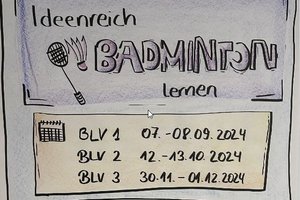 Ideenreich
BADMINTON
lernen
BLV 1 07.-08.09.2024
BLV 2 12.-13.10.2024
BLV 3 30.11.-01.12.2024